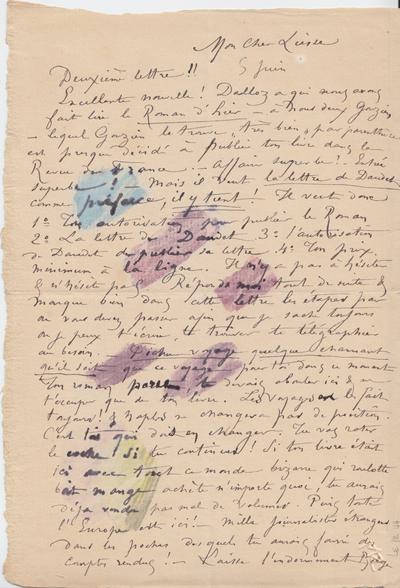 Mon cher Liesse
5 Juin
Deuxième lettre !!
Excellente nouvelle ! Dalloz a qui nous avons
fait lire le Roman d'hier – à nous deux Gonzien
– lequel Gonzien le trouve "très bien", par parenthèse
est presque décidé à publier ton livre dans la
Revue de France. – Affaire superbe ! – Entrée
superbe ! – Mais il veut la lettre de Daudet
comme préface, il y tient ! Il veut donc
1º Ton autorisation pour publier le Roman
2º La lettre de Daudet 3º l'autorisation
de Daudet de publier sa lettre 4º Ton prix
minimum à la ligne. Il n'y a pas à hésiter
& n'hésite pas. Réponds moi tout de suite &
marque bien dans cette lettre les étapes par
ou vous devez passer afin que je sache toujours
ou je peux t'écrire, te trouver te télégraphier
au besoin. Fichu voyage quelque charmant
qu'il soit que ce voyage pour toi dans ce moment
Ton roman parle, tu devrais être ici & ne
t'occuper que de ton livre. Les voyages se fait
toujours ! & Naples ne changera pas de position.
C'est toi qui dois en changer. Tu vas rater
le coche si tu continues ! Si ton livre était
ici avec tout ce monde bizarre qui roulotte
boit mange achète n'importe quoi, tu aurais
déjà vendu pas mal de volumes. Puis toute
l'Europe est ici ! – Mille journalistes étrangers
dans les poches desquels tu aurais fourré des
comptes rendus ! – Laisse l'